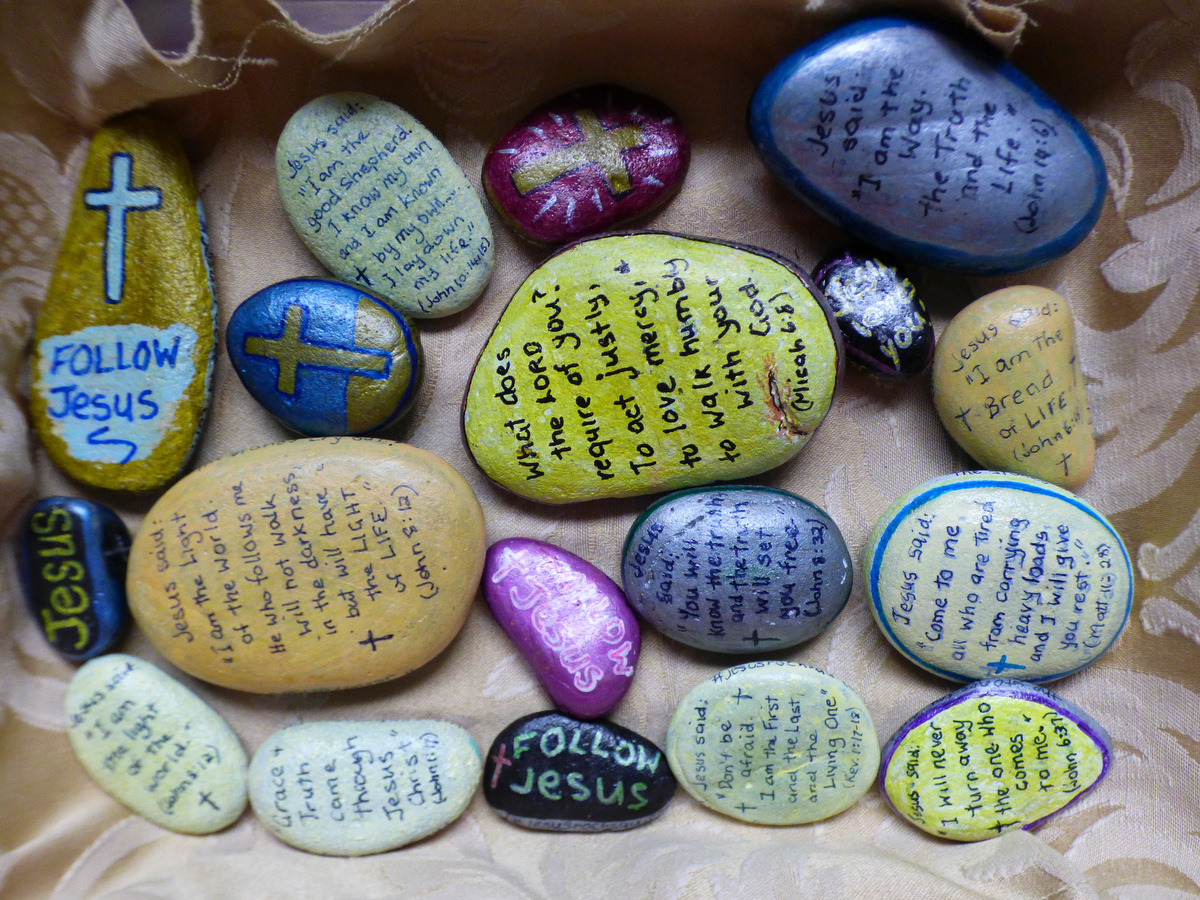 Jesus said:
"I am the
good Shepherd.
I know my own
and I am known
by my own....
I lay down
my life."
(John 10:14,15)
Jesus
said:
"I am the
Way.
the Truth
and the
Life"
(John 14:6)
FOLLOW
Jesus
What does
the LORD
require of you?
To act justly,
to love mercy,
to walk humbly
with your
God.
(Micah 6:8)
Jesus said:
"I am the
Bread
of LIFE"
Jesus
Jesus said:
"I am the Light
of the World.
He who follows me
will not walk
in the darkness
but will have
the LIGHT
of LIFE."
(John 8:12)
FOLLOW
Jesus
Jesus
said:
"You will
know the truth
and the truth
will set
you free"
(John 8:32)
Jesus said:
"Come to me
all who are Tired
from carrying
heavy loads
and I will give
you rest."
(Matt 11:28)
Jesus said:
"I am
the light
of the
world."
(John 8:12)
Grace +
Truth
came
through
Jesus
Christ"
(John 1:17)
FOLLOW
Jesus
Jesus said:
"Don't be
afraid.
I am the First
and the Last
and the
Living One"
(Rev. 1:17-18)
Jesus said:
"I will never
turn away
the one who
comes
to me."
(John 6:37)